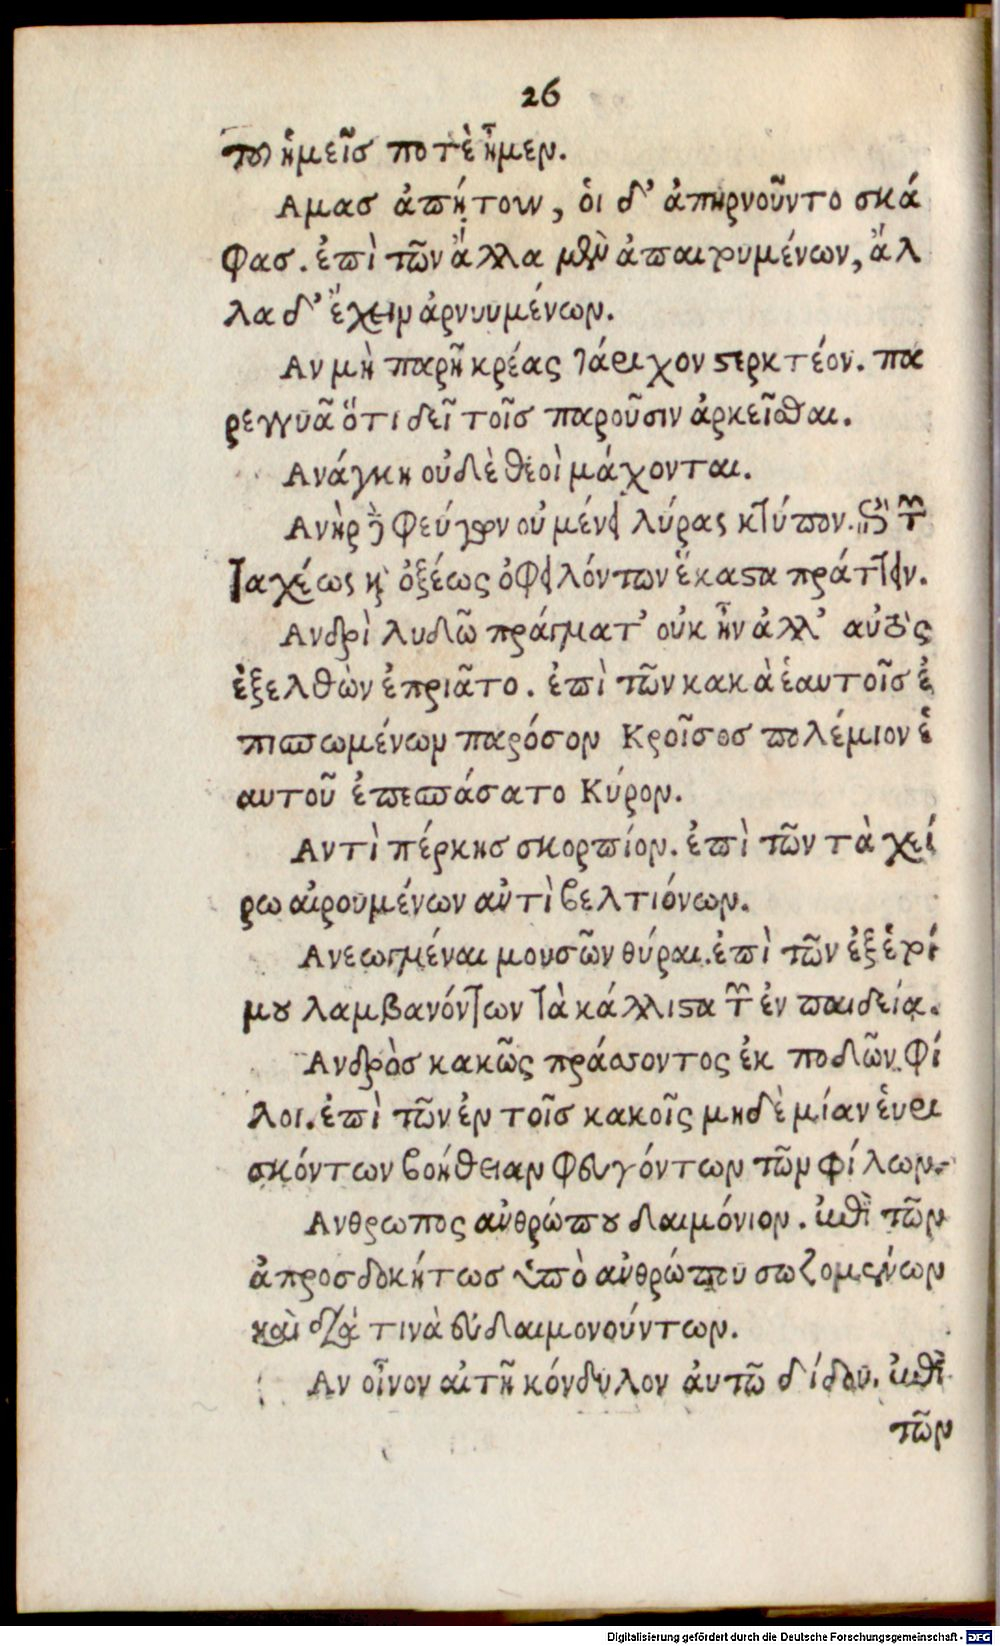 26
του ἡμεῖς ποτὲ ἦμεν.
Αμας ἀπῄτουν, ὁι δ' ἀπηρνοῦντο σκά
φας. ἐπὶ τῶν ἄλλα μὲν ἀπαιρουμένων, ἄλ
λα δ' ἔχειν ἀρνουμένων.
Αν μὴ παρῇ κρέας τάριχον στερκτέον. πα
ρεγγυᾶ ὅτι δεῖ τοῖς παροῦσιν ἀρκεῖσθαι.
Ανάγκη οὐδὲ θεοὶ μάχονται.
Ανὴρ ὁ φεύγων οὐ μένει λύρας κτύπον. ἐπὶ τῶν
ταχέως καὶ ὀξέως ὀφειλόντων ἕκαστα πράττειν.
Ανδρὶ λυδῶ πράγματ' οὐκ ἦν ἀλλ' αὐτὸς
ἐξελθὼν ἐπριᾶτο. ἐπὶ τῶν κακὰ ἑαυτοῖς ἐ
πισπωμένων παρόσον Κροῖσος πολέμιον ἑ
αυτοῦ ἐπεσπάσατο Κύρον.
Αντὶ πέρκης σκορπίον. ἐπὶ τῶν τὰ χεί
ρω αἱρουμένων αὐτὶ βελτιόνων.
Ανεωγμέναι μουσῶν θύραι. ἐπὶ τῶν ἐξ ἑρί
μου λαμβανόντων τὰ κάλλιστα τῶν ἐν παιδεία.
Ανδρὸς κακῶς πράσσοντος ἐκ ποδῶν φί
λοι. ἐπὶ τῶν ἐν τοῖς κακοῖς μηδὲ μίαν ἑυρι
σκόντων βοήθειαν φευγόντων τῶν φίλων.
Ανθρωπος αὐθρώπου δαιμόνιον. ἐπὶ τῶν
ἀπροσδοκήτως ὑπὸ αὐθρώπου σωζομένων
καὶ διά τινὰ εὐδαιμονούντων.
Αν οἶνον αἰτῇ κόνδυλον ἀυτῶ δίδου. ἐπὶ
τῶν
Digitalisierung gefördert durch die Deutsche Forschungsgemeinschaft - DFG